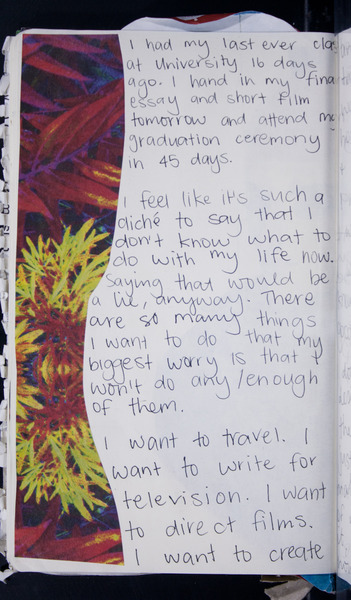 I had my last ever clas
at University 16 days
ago. I hand in my fina
essay and short film
tomorrow and attend my
graduation ceremony
in 45 days.
I feel like it's such a
cliché to say that I
don't know what to
do with my life now.
Saying that would be
a lie, anyway. There
are so many things
I want to do that my
biggest worry is that I
won't do any/enough
of them.
I want to travel. I
want to write for
television. I want
to direct films.
I want to create